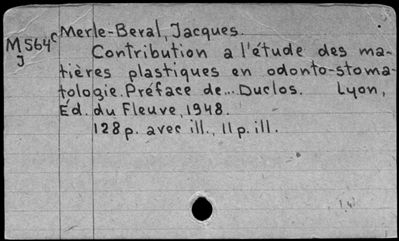 Merle-Beral, Jacques.
M564c
J
Contribution a l'étude des ma-
tières plastiques en odonto-stoma-
tologie. Préface de... Duclos. Lyon,
Éd. du Fleuve, 1948.
128 p. avec ill., 11 p. ill.